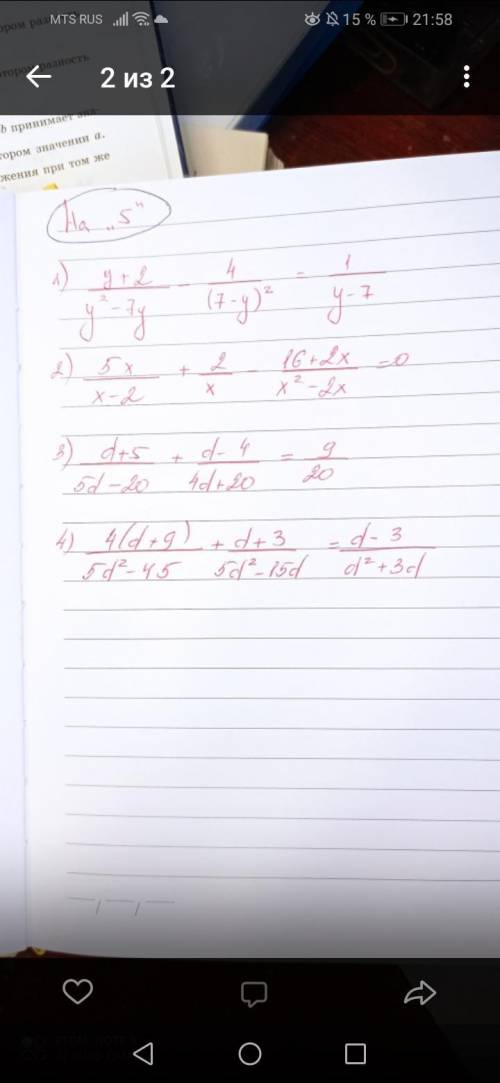 MTS RUS 15 % 21:58
2 из 2
ором
отором разность
b принимает
тором значении a.
жения при том же
На „5"
1) (y+2)/(y²-7y) - 4/(7-y)² = 1/(y-7)
2) 5x/(x-2) + 2/x - (16+2x)/(x²-2x) = 0
3) (d+5)/(5d-20) + (d-4)/(4d+20) = 9/20
4) 4(d+9)/(5d²-45) + (d+3)/(5d²-15d) = (d-3)/(d²+3d)